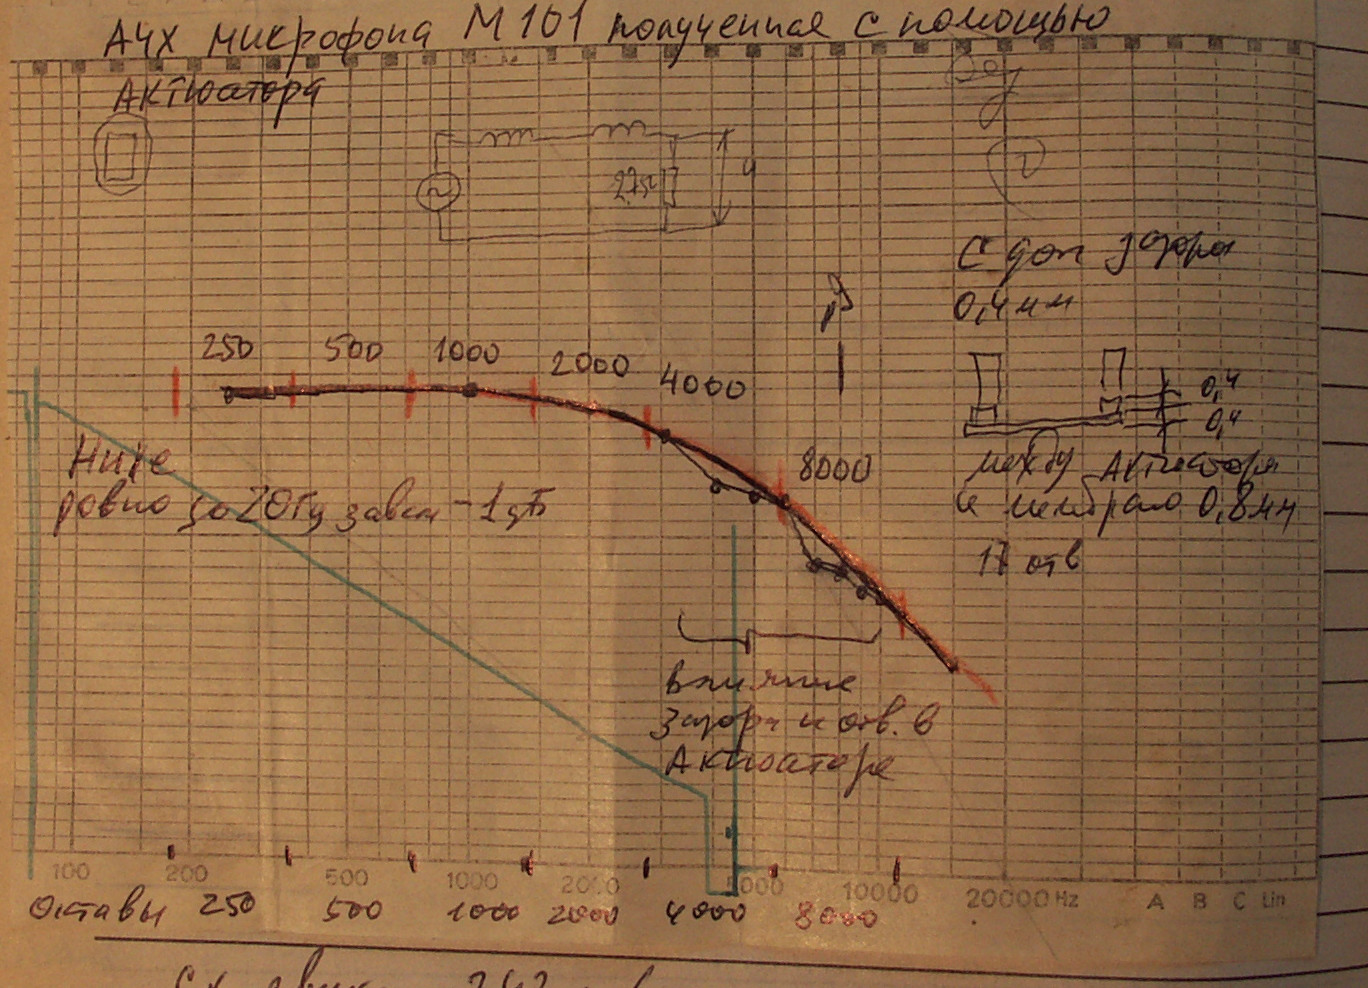 АЧХ микрофона М101 полученная с помощью
Актюатора
2,7
U
С доп зазора
0,4 мм
250 500 1000 2000 4000 8000
0,4
0,4
между Актюатора
и мембрано 0,8мм
17 отв
Ниже
ровно до 20Гц завал -1дБ
Влияние
зазора и отв. в
Актюаторе
100 200 500 1000 2000 5000 10000 20000 Hz A B C Lin
Октавы 250 500 1000 2000 4000 8000